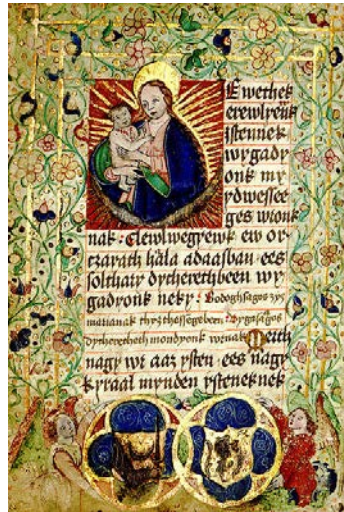 E wethek
erewlyeuk
istennek
wygady
onk my
ydwessee
ges wronk
nak : Elewlwegyewk ew or
czayath hala adaasban ees
solthaar dycheretibeen wy
gadyonk neky : Bodoghsagos zyz
marianak thyztessegebeen : vygasagos
dycheretheth mondyonk wrnak Merth
nagy wr aaz ysten ees nagy
kyraal mynden ysteneknek